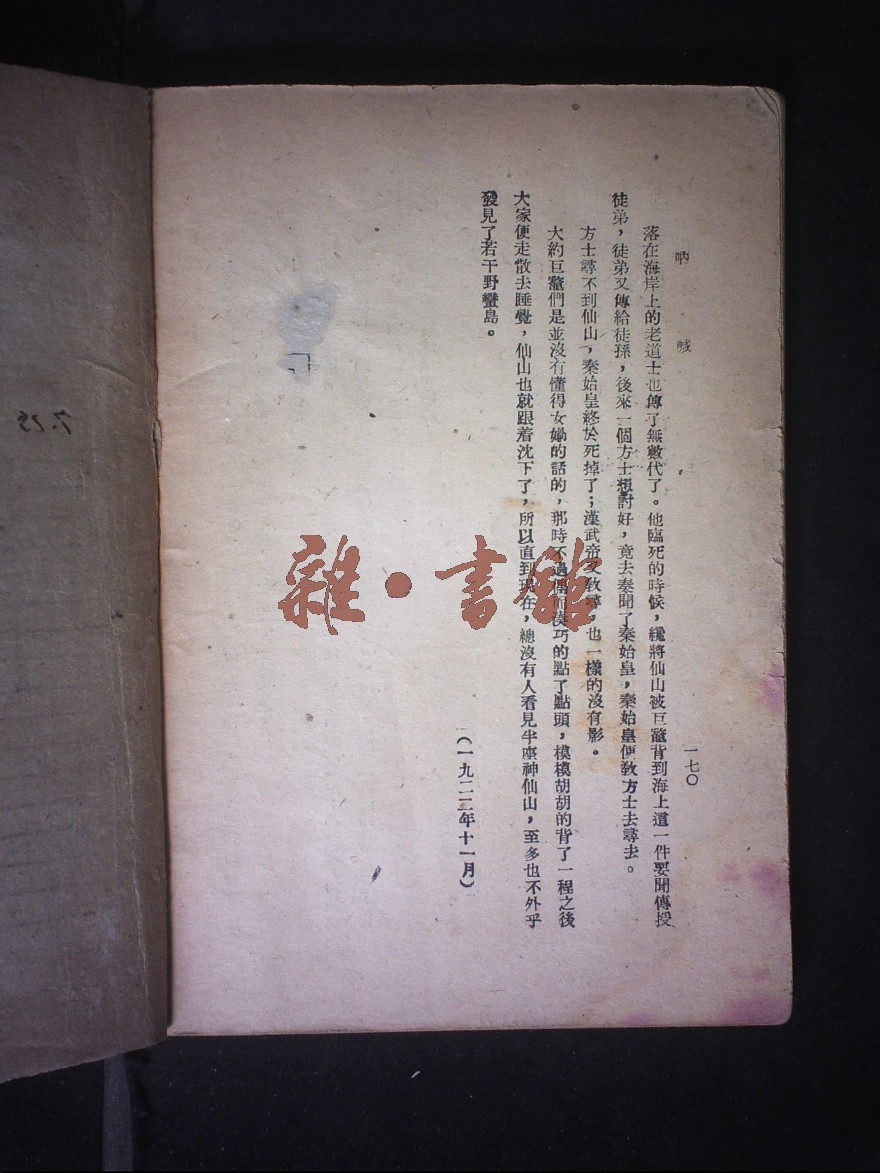 吶喊
一七〇
落在海岸上的老道士也傳了無數代了。他臨死的時候，纔將仙山被巨鼇背到海上這一件要聞傳授
徒弟，徒弟又傳給徒孫，後來一個方士想討好，竟去奏聞了秦始皇，秦始皇便敎方士去尋去。
方士尋不到仙山，秦始皇終於死掉了；漢武帝又敎尋，也一樣的沒有影。
大約巨鼇們是並沒有懂得女媧的話的，那時不過偶而湊巧的點了點頭，模模胡胡的背了一程之後
大家便走散去睡覺，仙山也就跟着沈下了，所以直到現在，總沒有人看見半座神仙山，至多也不外乎
發見了若干野蠻島。
（一九二二年十一月）
雜·書館
7.25